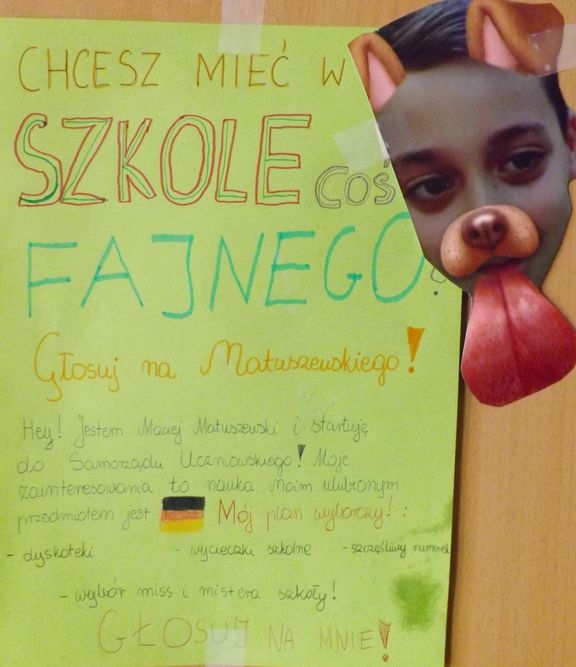 CHCESZ MIEĆ W
SZKOLE COŚ
FAJNEGO?
Głosuj na Matuszewskiego!
Hey! Jestem Maciej Matuszewski i startuję
do Samorządu Uczniowskiego! Moje
zainteresowania to nauka. Moim ulubionym
przedmiotem jest Mój plan wyborczy! :
- dyskoteki - wycieczki szkolne - szczęśliwy numerek
- wybór miss i mistera szkoły!
GŁOSUJ NA MNIE!